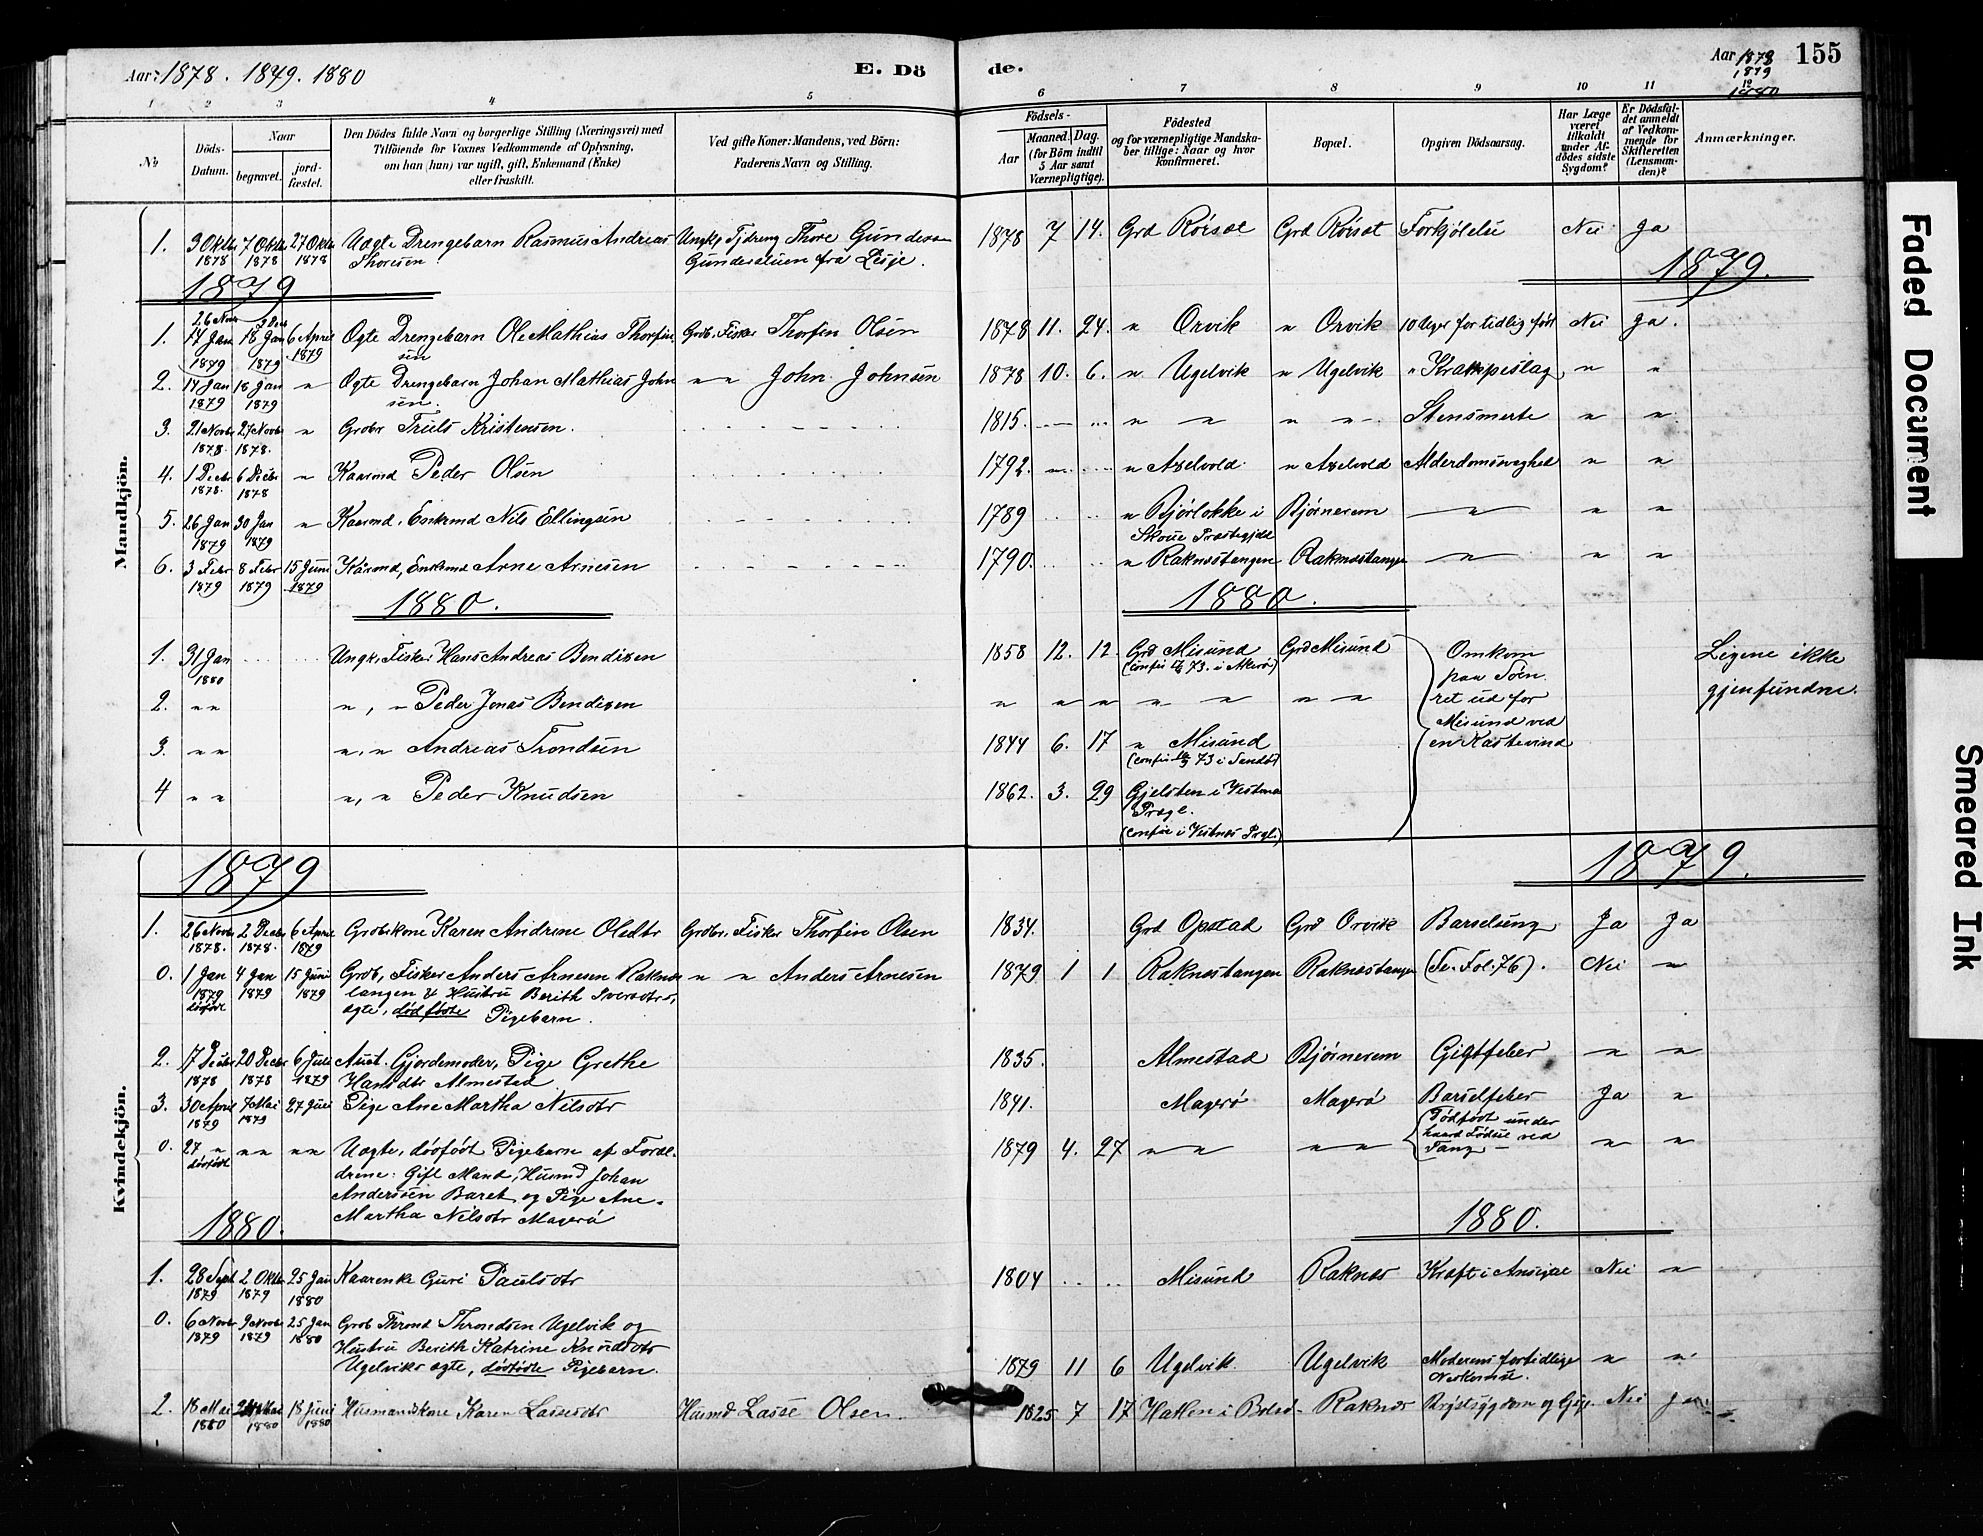 Aar: 1878. 1879. 1880
E. Dö
de.
Aar 1878
1879
1880
155
1 2 3 4 5
6 7 8 9 10 11
No
Döds-
Datum.
Naar
begravet.
jord-
fæstet.
Den Dödes fulde Navn og borgerlige Stilling (Næringsvei) med
Tilföiende for Voxnes Vedkommende af Oplysning,
om han (hun) var ugift, gift, Enkemand (Enke)
eller fraskilt.
Ved gifte Koner: Mandens, ved Börn:
Faderens Navn og Stilling.
Födsels-
Aar
Maaned. Dag.
(for Börn indtil
5 Aar samt
Værnepligtige).
Födested
og for værnepligtige Mandska-
ber tillige: Naar og hvor
konfirmeret.
Bopæl.
Opgiven Dödsaarsag.
Har Læge
været
tilkaldt
under Af-
dödes sidste
Sygdom?
Er Dödsfal-
det anmeldt
af Vedkom-
mende for
Skifteretten
(Lensman-
den)?
Anmærkninger.
Mandkjön.
1. 3 Oktbr 1878 7 Oktbr 1878 27 Oktbr 1878 Uægte Drengebarn Rasmus Andreas
Thoresen
Ungk, Tjdreng Thore
fra Lesje.
1878 7 14. Grd Rörset Grd Rörset Forkjölelse Nei Ja
1879
1879.
26 Novbr 2 Decb
1. 14 Jan 1879 18 Jan 1879 6 April 1879 Ægte Drengebarn Ole Mathias Thorfin-
sen
Grdbr. Fisker Thorfin Olsen
1878 11. 24. " Orvik " Orvik 10 Uger for tidlig född Nei Ja.
2. 14 Jan 1879 18 Jan 1879 " Ægte Drengebarn Johan Mathias John
sen.
" " John Johnsen
1878 10. 6. " Ugelvik " Ugelvik " " "
3. 21 Novbr 1878. 27 Novbr 1878. " Grdbr Truls Kristensen.
1815. " " " " Stensmerte " "
4. 1 Decbr 1878. 6 Decbr 1878 " Kaarmd Peder Olsen
1792. " Axelvold " Axelvold Alderdomsvaghed " "
5. 26 Jan 1879 30 Jan 1879 " Kaarmd, Enkemd Nils Ellingsen
1789 " Bjørlokke i
Skoue Præstegjeld
Bjørnerem " " "
6. 3 Febr 1879 8 Febr 1879 15 Juni 1879 Kårmd, Enkemd Arne Arnesen
1790. " Raknestangen Raknestangen " " "
1880.
1880.
1. 31 Jan 1880 Ungk. Fisker Hans Andreas Bendixen
1858 12. 12. Grd Misund
Grd Misund
Omkom
paa Söen
ret ud for
Misund ved
en Kastevind
Ligene ikke
gjenfundne.
2. " " ", " Peder Jonas Bendixen
" " " " " " "
3. " " ", " Andreas Trondsen
1844 6. 17 " Misund
4 " " ", " Peder Knudsen
1862. 3. 29 Gjelsten i Vestnes
Prægl.
(confir i Vestnes Prgl.)
Kvindekjön.
1879
1879.
1. 26 Novbr 1878. 2 Decbr 1878. 6 April 1879 Grdbrkone Karen Andrine Olsdtr
Grdbr. Fisker Thorfin Olsen
1834. Grd Opstad Grd Orvik Barselseng Ja Ja
0. 1 Jan 1879 dødfødt 4 Jan 1879 15 Juni 1879 Grdb, Fisker Anders Arnesen Raknes-
tangen & Hustru Berith Iversdtrs,
ægte, dødfødte Pigebarn.
" " Anders Arnesen
1879 1 1 Raknestangen Raknestangen (Se. Fol. 76). Nei "
2. 7 Decbr 1878 20 Decbr 1878 6 Juli 1879 Aust. Gjordemoder, Pige Grethe
Hansdtr Almestad
1835. Almestad Bjørnerem Gigtfeber " "
3. 30 April 1879 7 Mai 1879 27 Juli Pige Ane Martha Nilsdtr
1841. Magerö Magerö Barselfeber Ja "
0. 27 " dødfødt " " " " Uægte, dødfødt Pigebarn af Foræl-
drene: Gift Mand, Husmd Johan
Anderssen Baret og Pige Ane-
Martha Nilsdtr Magerö
1879 4. 27 " " " " Dødfødt under
haard Fødsel ved
Tang " "
1880.
1880.
1. 28 Sept 1879 2 Oktbr 1879 25 Jan 1880 Kaarenke Guri Paulsdtr
1804 Misund Raknes Kræft i Ansigtet Nei "
0. 6 Novbr 1879 9 Novbr 1879 25 Jan 1880 Grdb Thrond Throndsen Ugelvik og
Hustru Berith Katrine Knudsdtr
Ugelviks ægte, dødfødte Pigebarn.
1879 11 6 Ugelvik. Ugelvik Moderens fortidlige
Nedkomst. " "
2. 18 Mai 1880 1880 18 Juni 1880 Husmandskone Karen Lassesdtr
Husmd Lasse Olsen.
1825 7 17 i Bolsø Raknes Brystsygdom og Gigt Nei Ja
Faded Document
Smeared Ink